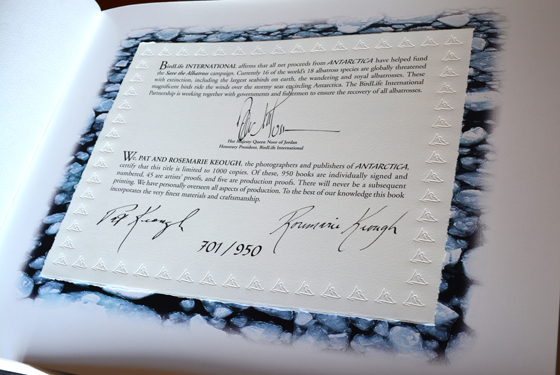 BirdLife INTERNATIONAL affirms that all net proceeds from ANTARCTICA have helped fund
the Save the Albatross campaign. Currently 16 of the world's 18 albatross species are globally threatened
with extinction, including the largest seabirds on earth, the wandering and royal albatrosses. These
magnificent birds ride the winds over the stormy seas encircling Antarctica. The BirdLife International
Partnership is working together with governments and fishermen to ensure the recovery of all albatrosses.
Her Majesty Queen Noor of Jordan
Honorary President, BirdLife International
We, PAT AND ROSEMARIE KEOUGH, the photographers and publishers of ANTARCTICA,
certify that this title is limited to 1000 copies. Of these, 950 books are individually signed and
numbered, 45 are artists' proofs, and five are production proofs. There will never be a subsequent
printing. We have personally overseen all aspects of production. To the best of our knowledge this book
incorporates the very finest materials and craftsmanship.
Pat Keough Rosemarie Keough
701/950